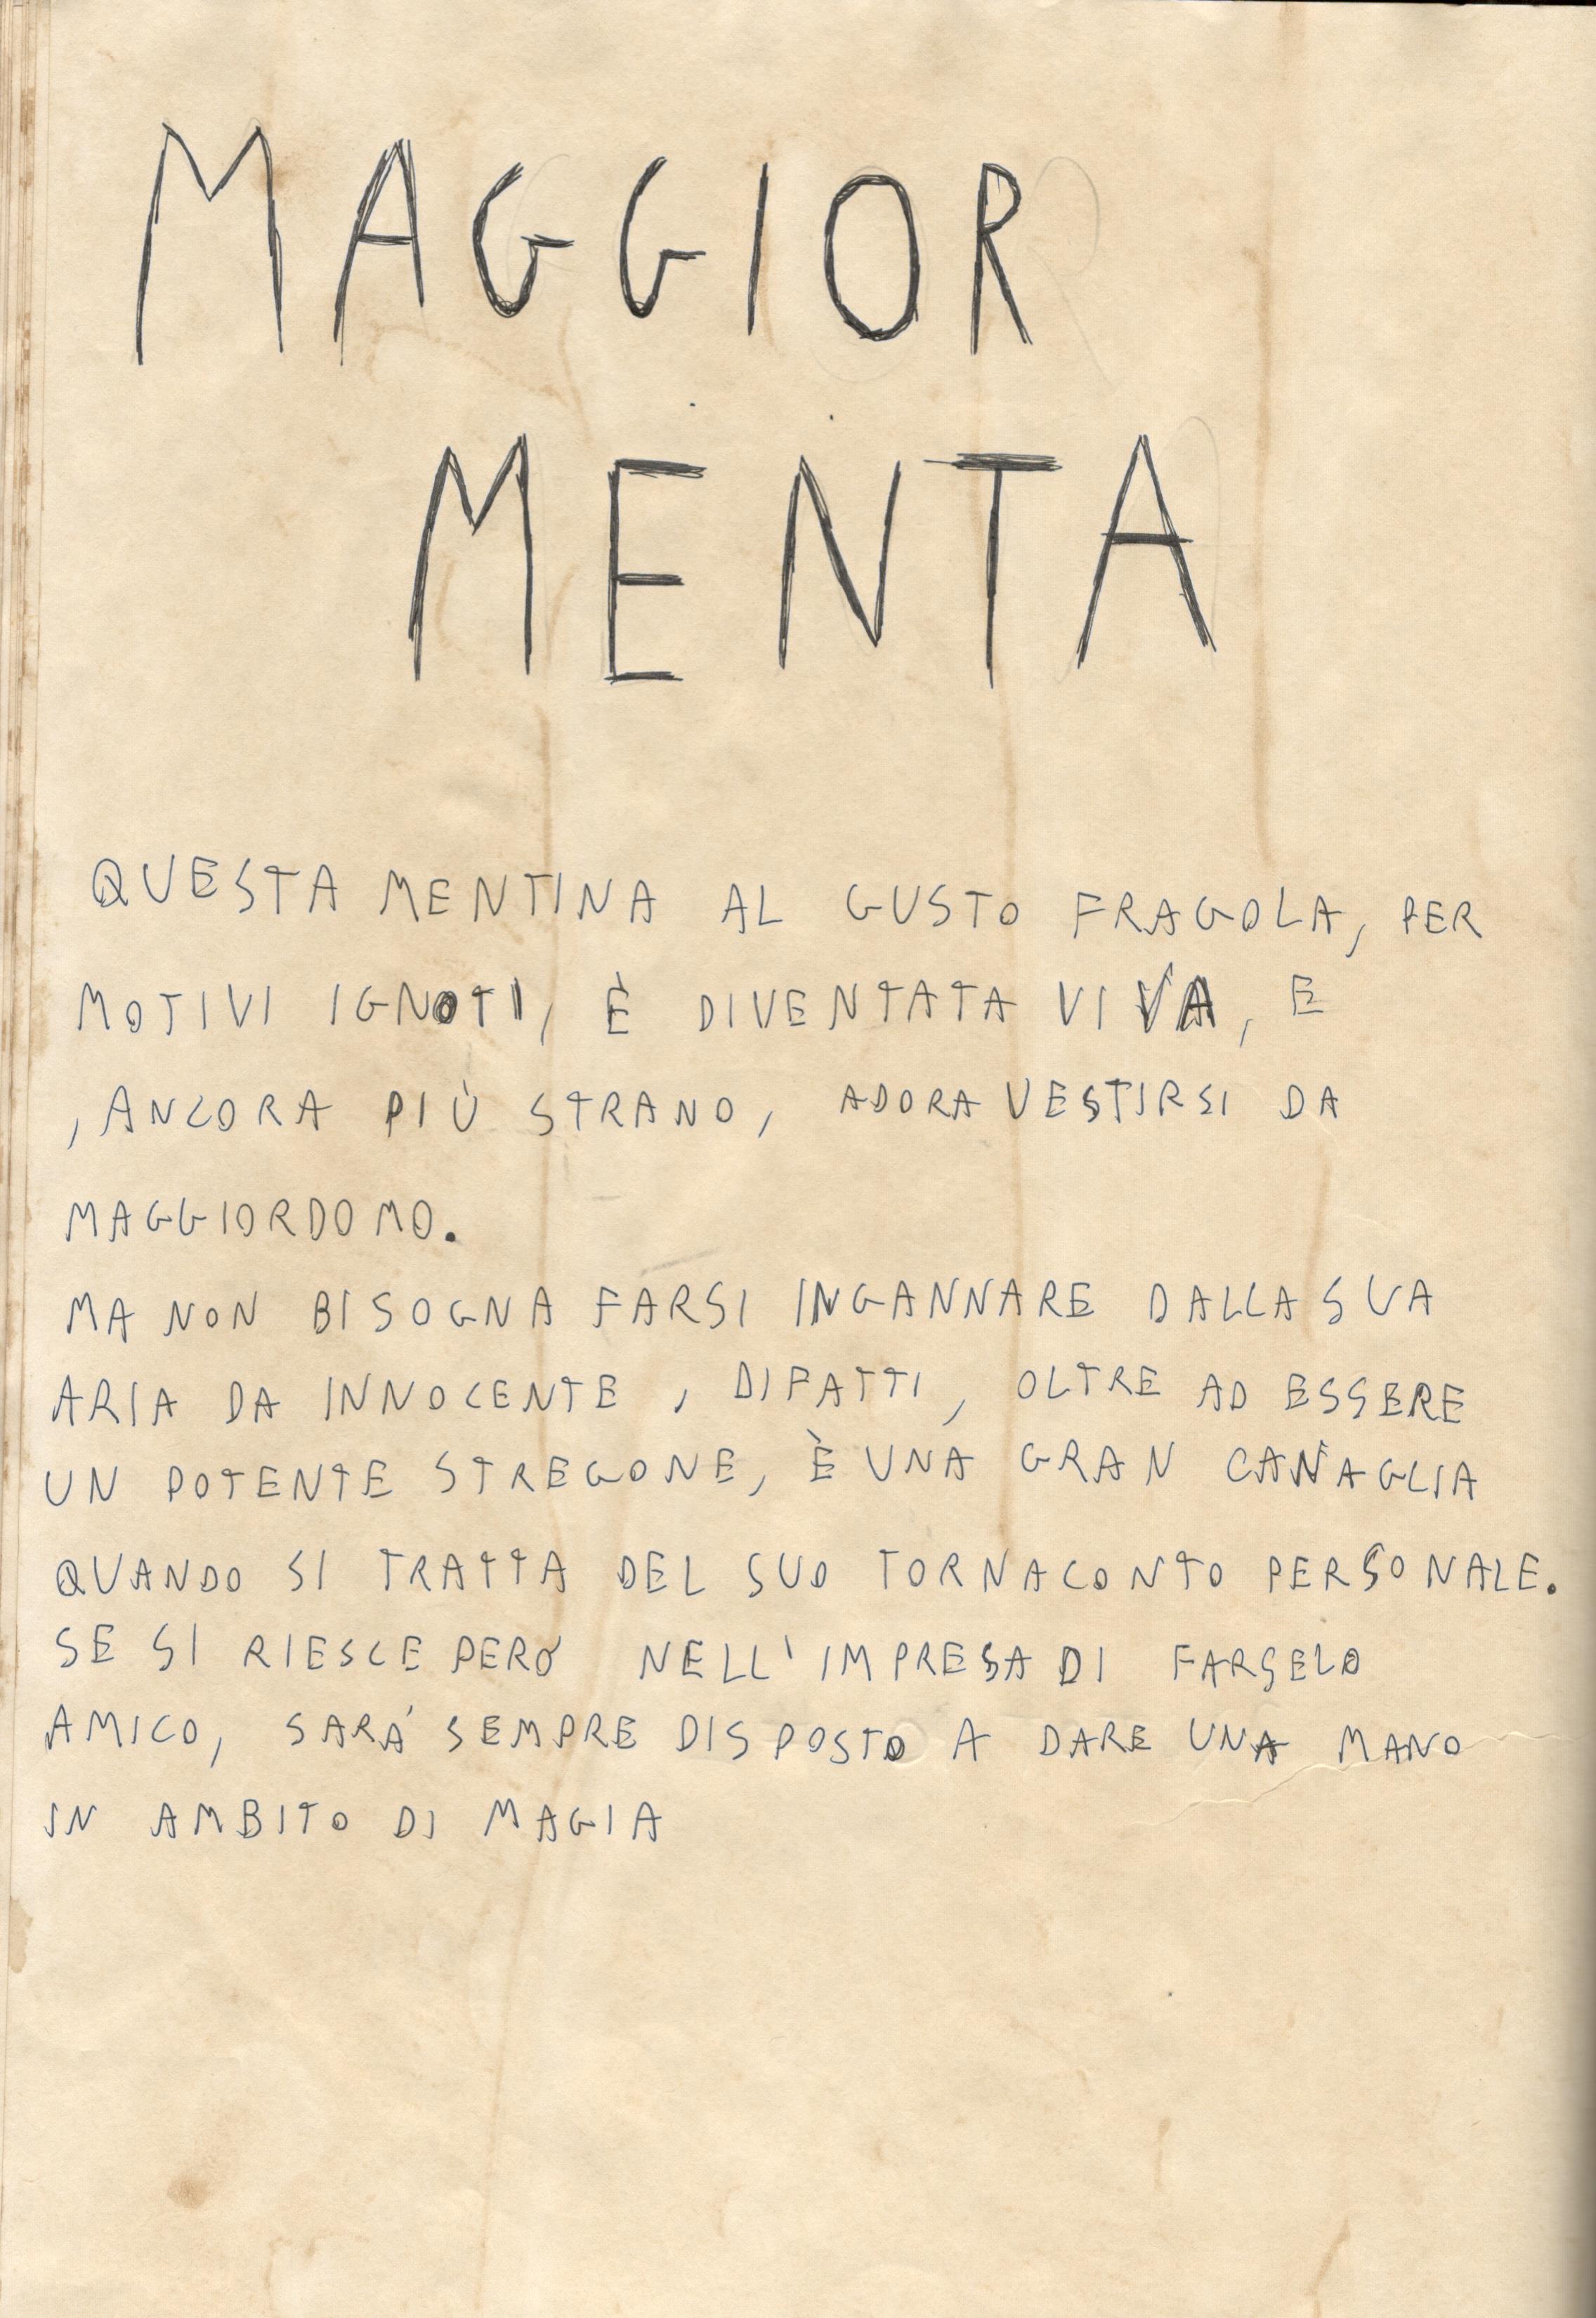 MAGGIOR
MENTA
QUESTA MENTINA AL GUSTO FRAGOLA, PER
MOTIVI IGNOTI, È DIVENTATA VIVA, E
, ANCORA PIÙ STRANO, ADORA VESTIRSI DA
MAGGIORDOMO.
MA NON BISOGNA FARSI INGANNARE DALLA SUA
ARIA DA INNOCENTE, DIFATTI, OLTRE AD ESSERE
UN POTENTE STREGONE, È UNA GRAN CANAGLIA
QUANDO SI TRATTA DEL SUO TORNACONTO PERSONALE.
SE SI RIESCE PERÓ NELL'IMPRESA DI FARSELO
AMICO, SARÁ SEMPRE DISPOSTO A DARE UNA MANO
IN AMBITO DI MAGIA